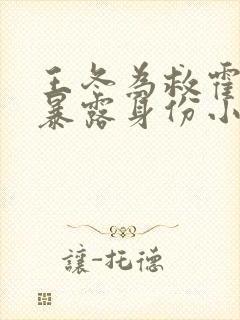 王冬为救霍
暴露身份小
讓-托德